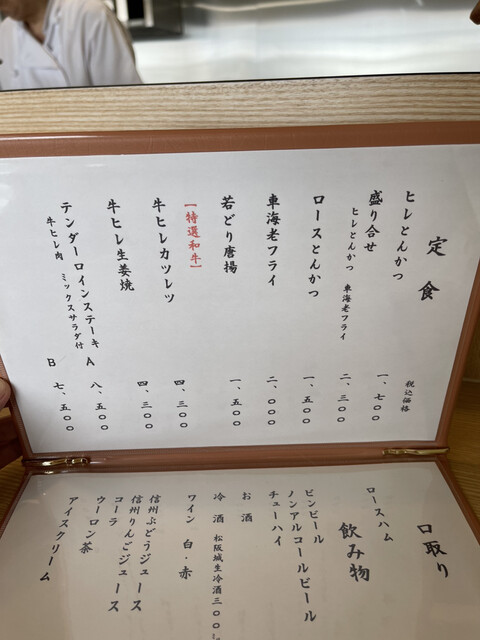 定食
税込価格
ヒレとんかつ 一、七〇〇
盛り合せ 二、三〇〇
ヒレとんかつ 車海老フライ
ロースとんかつ 一、五〇〇
車海老フライ 二、〇〇〇
若どり唐揚 一、五〇〇
【特選和牛】
牛ヒレカツレツ 四、三〇〇
牛ヒレ生姜焼 四、三〇〇
テンダーロインステーキ A 八、五〇〇
牛ヒレ肉 ミックスサラダ付 B 七、五〇〇
口取り
ロースハム
飲み物
ビンビール
ノンアルコールビール
チューハイ
お酒
冷酒 松阪城生冷酒三〇〇
ワイン 白・赤
信州ぶどうジュース
信州りんごジュース
コーラ
ウーロン茶
アイスクリーム